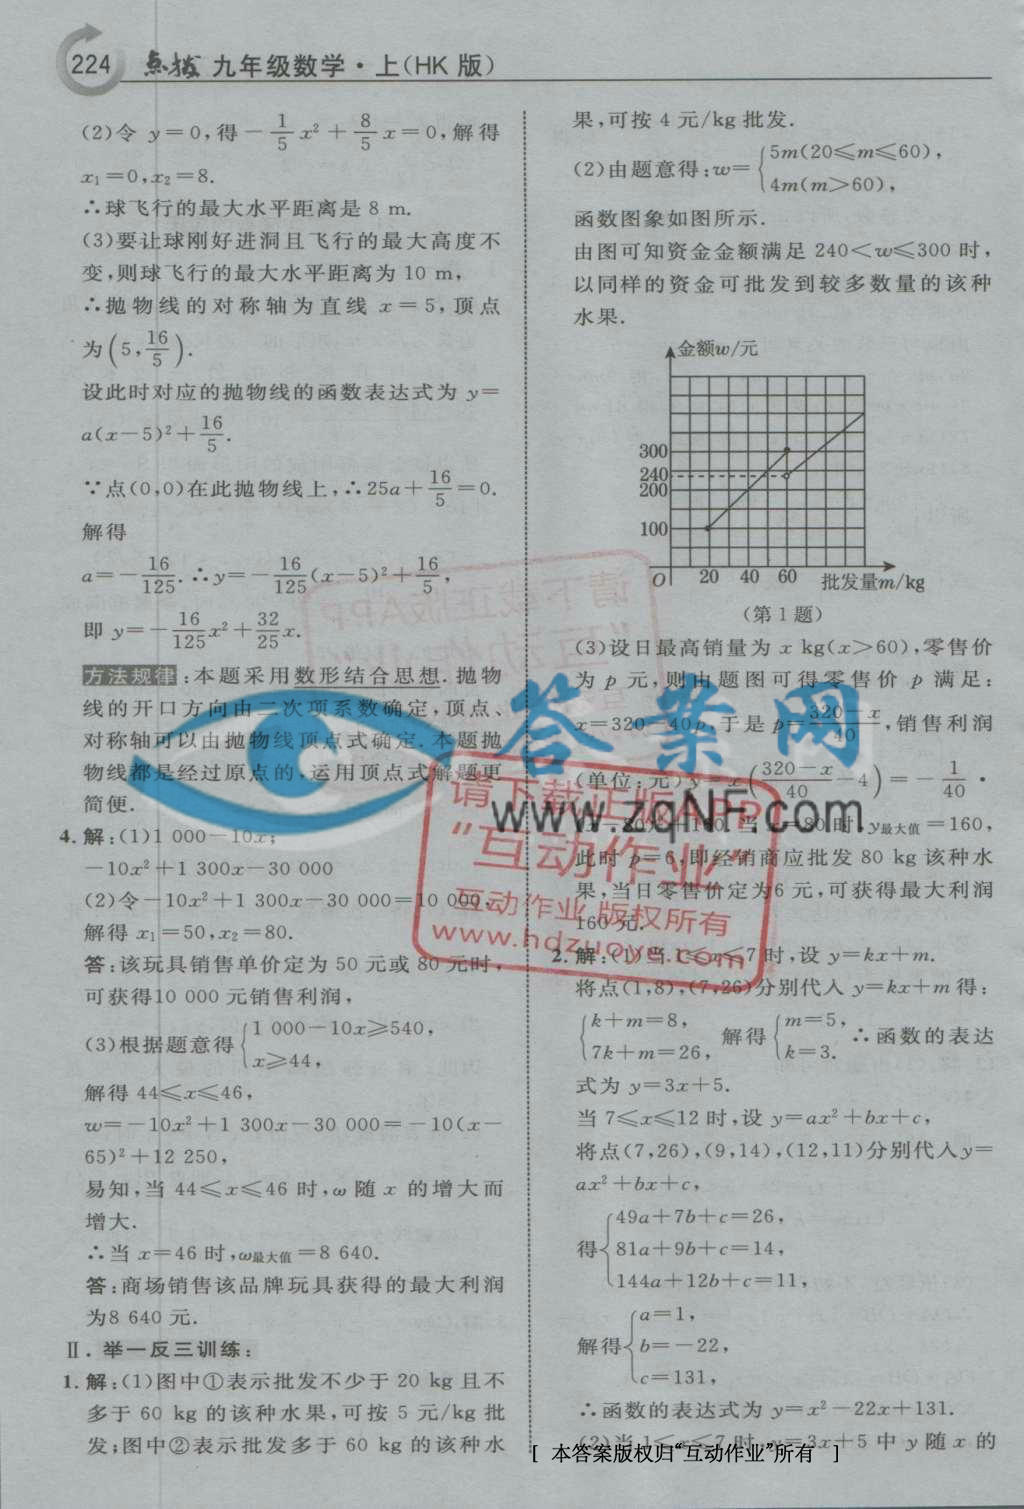 224 点拨 九年级数学·上(HK版)
(2)令 y=0,得-1/5x²+8/5x=0,解得
x₁=0,x₂=8.
∴球飞行的最大水平距离是 8 m.
(3)要让球刚好进洞且飞行的最大高度不
变,则球飞行的最大水平距离为 10 m,
∴抛物线的对称轴为直线 x=5,顶点
为(5,16/5).
设此时对应的抛物线的函数表达式为 y=
a(x-5)²+16/5.
∵点(0,0)在此抛物线上,∴25a+16/5=0.
解得
a=-16/125.∴y=-16/125(x-5)²+16/5,
即 y=-16/125x²+32/25x.
方法规律:本题采用数形结合思想.抛物
线的开口方向由二次项系数确定,顶点、
对称轴可以由抛物线顶点式确定.本题抛
物线都是经过原点的,运用顶点式解题更
简便.
4.解:(1)1 000-10x;
-10x²+1 300x-30 000
(2)令-10x²+1 300x-30 000=10 000,
解得 x₁=50,x₂=80.
答:该玩具销售单价定为 50 元或 80 元时,
可获得10 000 元销售利润,
(3)根据题意得{1 000-10x≥540,
x≥44,
解得 44≤x≤46,
w=-10x²+1 300x-30 000=-10(x-
65)²+12 250,
易知,当 44≤x≤46 时,ω 随 x 的增大而
增大.
∴当 x=46 时,ω最大值=8 640.
答:商场销售该品牌玩具获得的最大利润
为8 640 元.
Ⅱ.举一反三训练:
1.解:(1)图中①表示批发不少于 20 kg 且不
多于 60 kg 的该种水果,可按 5 元/kg 批
发;图中②表示批发多于 60 kg 的该种水
果,可按 4 元/kg 批发.
(2)由题意得:w={5m(20≤m≤60),
4m(m>60),
函数图象如图所示.
由图可知资金金额满足 240<w≤300 时,
以同样的资金可批发到较多数量的该种
水果.
金额w/元
300
240
200
100
O 20 40 60 批发量m/kg
(第1题)
(3)设日最高销量为 x kg(x>60),零售价
为 p 元,则由题图可得零售价 p 满足:
x=320-40p,于是 p=320-x/40,销售利润
(单位:元)y=x(320-x/40-4)=-1/40·
(x-80)²+160.当x=80时,y最大值=160,
此时 p=6,即经销商应批发 80 kg 该种水
果,当日零售价定为6 元,可获得最大利润
160元.
2.解:(1)当 1≤x≤7 时,设 y=kx+m.
将点(1,8),(7,26)分别代入 y=kx+m 得:
{k+m=8, 7k+m=26, 解得{m=5, k=3. ∴函数的表达
式为 y=3x+5.
当 7≤x≤12 时,设 y=ax²+bx+c,
将点(7,26),(9,14),(12,11)分别代入y=
ax²+bx+c,
得{49a+7b+c=26,
81a+9b+c=14,
144a+12b+c=11,
解得{a=1,
b=-22,
c=131,
∴函数的表达式为 y=x²-22x+131.
(2)当 1≤x≤7 时,y=3x+5 中 y 随 x 的
[ 本答案版权归“互动作业”所有 ]
答案网
www.zqNF.com
请下载正版APP
“互动作业”
互动作业 版权所有
www.hdzuoye.com
请下载正版APP